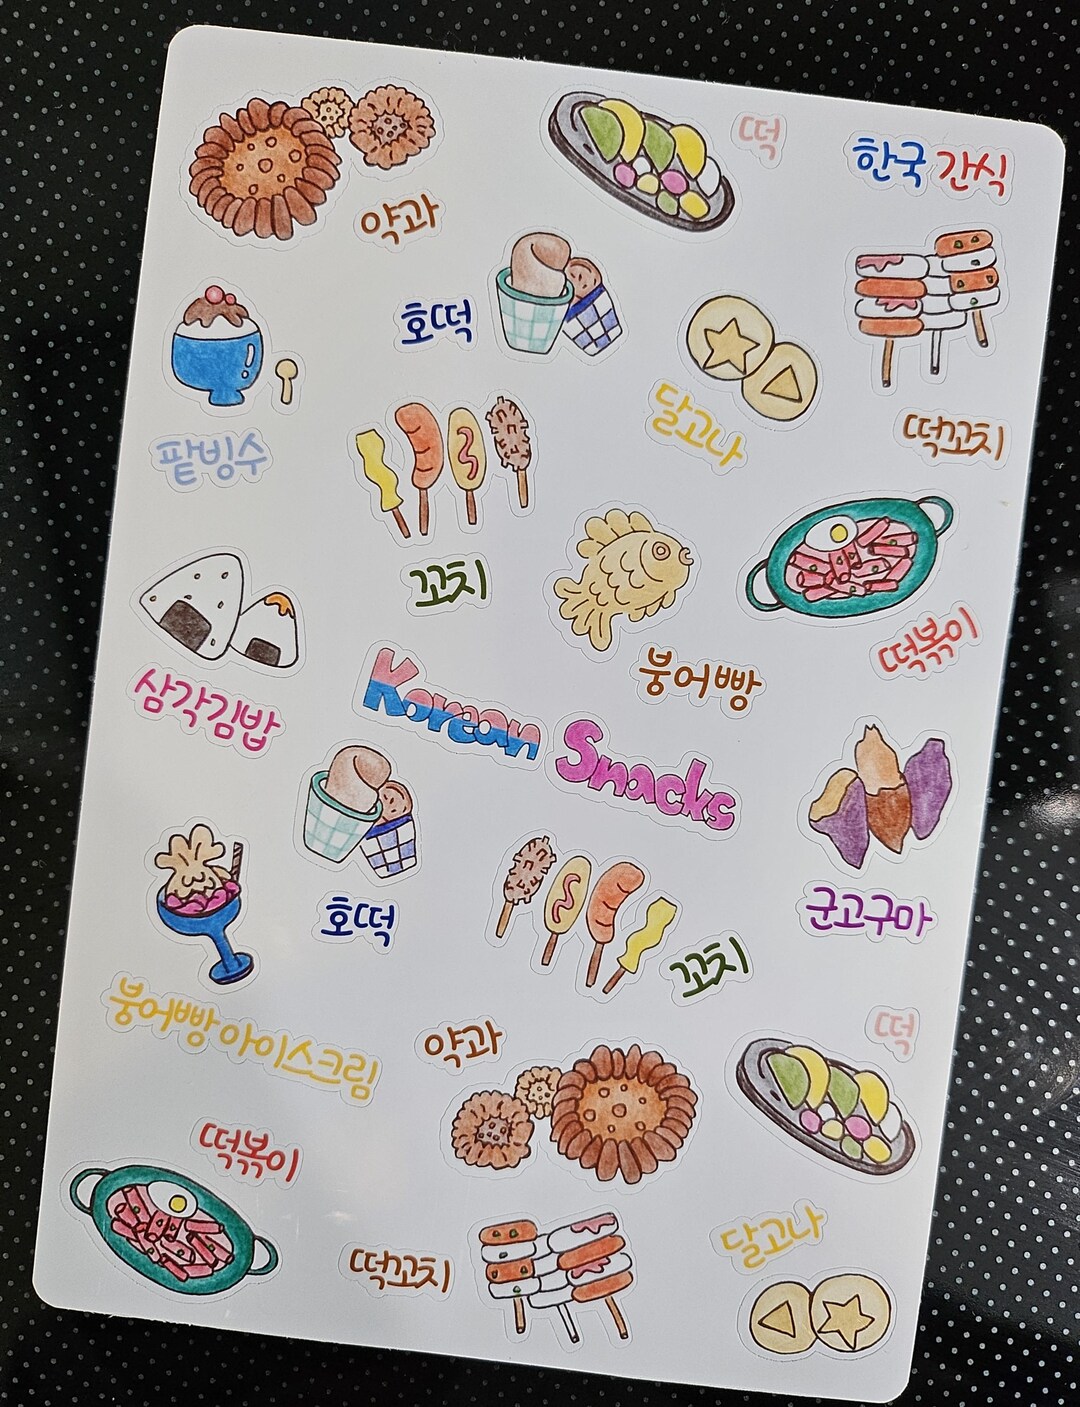 약과
떡
한국 간식
호떡
팥빙수
달고나
떡꼬치
꼬치
삼각김밥
붕어빵
떡볶이
Korean Snacks
호떡
꼬치
군고구마
붕어빵 아이스크림
약과
떡
떡볶이
떡꼬치
달고나